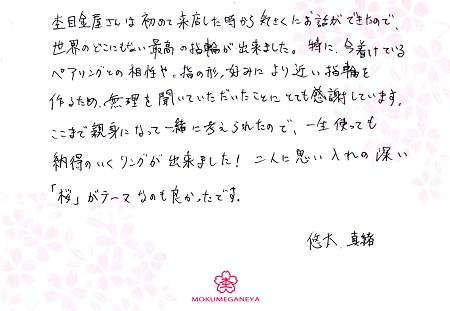 杢目金屋さんは初めて来店した時から気さくにお話ができたので、
世界のどこにもない最高の指輪が出来ました。特に、今着けている
ペアリングとの相性や、指の形、好みにより近い指輪を
作るため、無理を聞いていただいたことにとても感謝しています。
ここまで親身になって一緒に考えられたので、一生使っても
納得のいくリングが出来ました！二人に思い入れの深い
「桜」がテーマなのも良かったです。
悠太 真緒
MOKUMEGANEYA